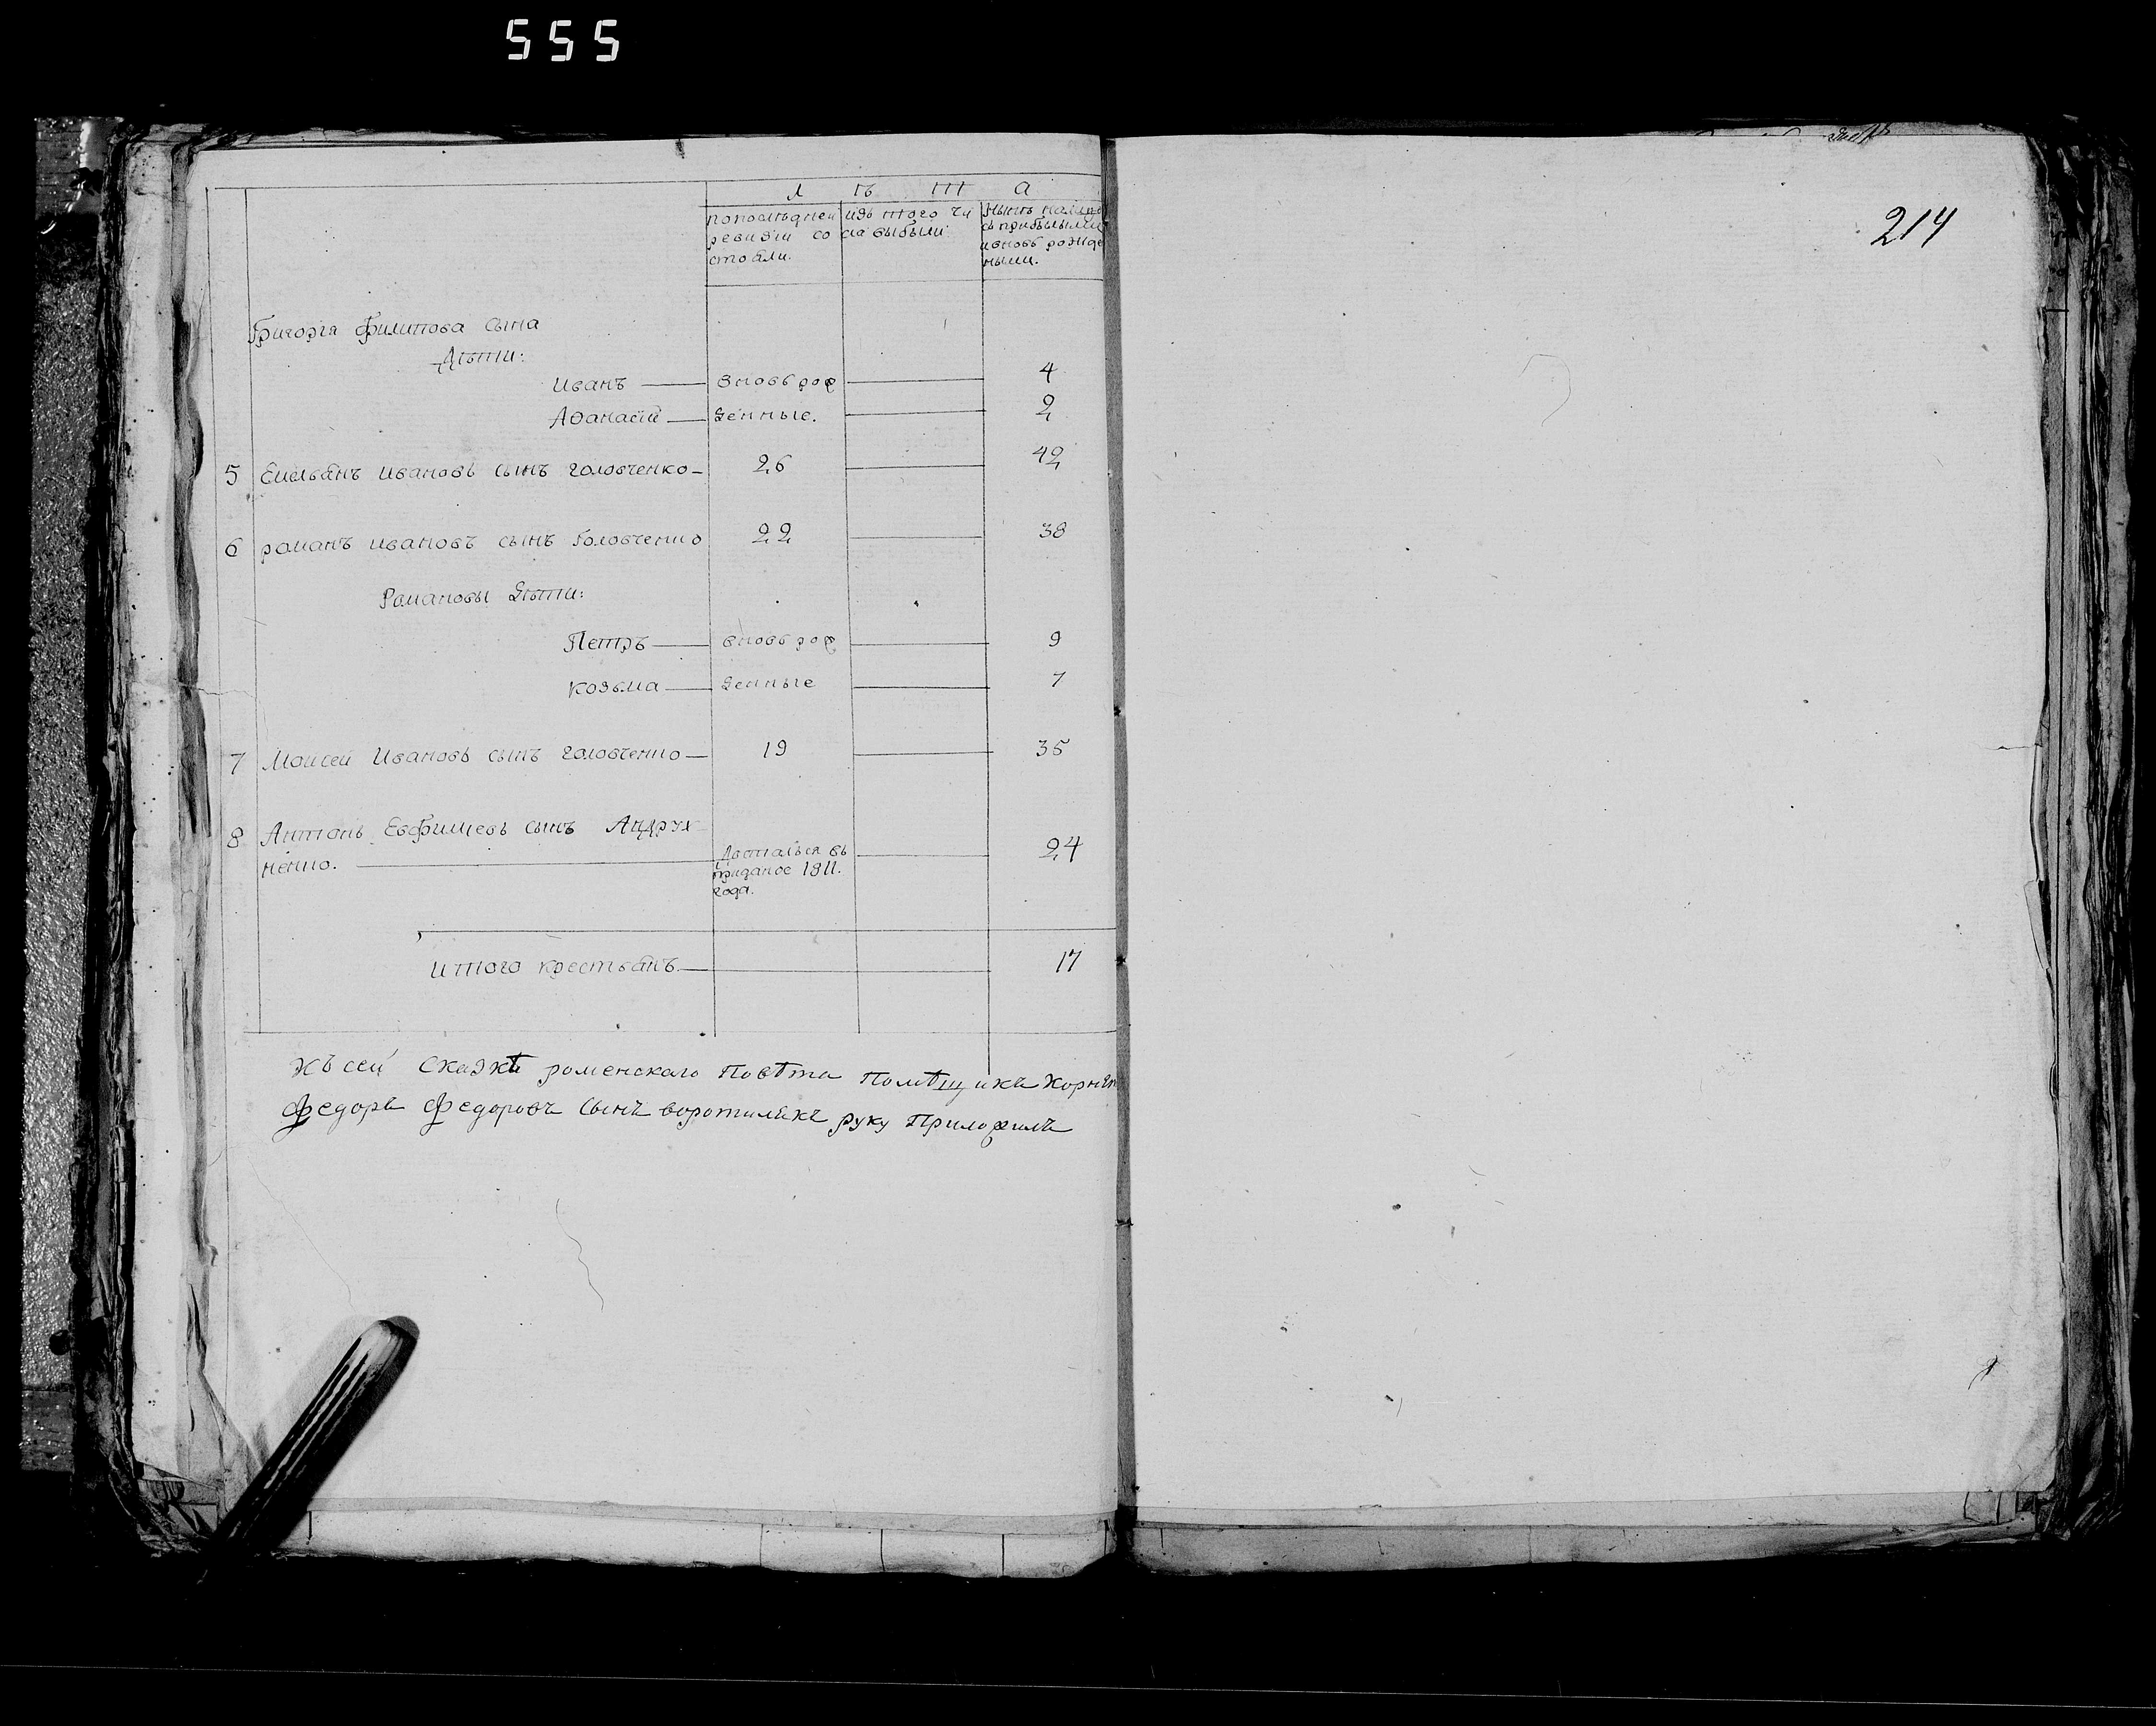 555
лѣта
попослѣдней ревизіи состояли. изъ того числа выбыли
нынѣ налицо съ прибылыми и вновь рожденными.
214
Григорія Филипова сына
Дѣти:
Иванъ вновь рож 4
Афанасій денные. 2
5 Емельянъ Ивановъ сынъ головченко 26 42
6 романъ ивановъ сынъ Головченко 22 38
Романовы дѣти:
Петръ вновь рож 9
козьма денные 7
7 Моисей Ивановъ сынъ головченко 19 35
8 Антонъ Евфимиевъ сынъ Андрух
ненко. Достался въ 24
приданое 1811.
года.
итого крестьянъ 17
Къ сей Сказкѣ роменскаго Повѣта Помѣщикъ Корнетъ
Федоръ Федоровъ Сынъ воротилякъ руку Приложилъ